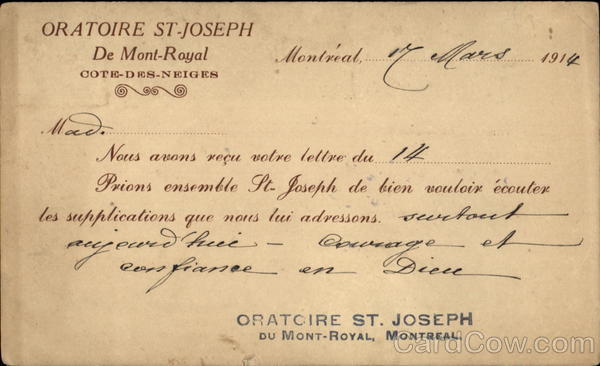 ORATOIRE ST-JOSEPH
De Mont-Royal
COTE-DES-NEIGES
Montréal, 17 Mars 1914
Mad.
Nous avons reçu votre lettre du 14
Prions ensemble St-Joseph de bien vouloir écouter
les supplications que nous lui adressons. surtout
aujourd'hui - Courage et
confiance en Dieu
ORATOIRE ST. JOSEPH
DU MONT-ROYAL, MONTREAL.
CardCow.com